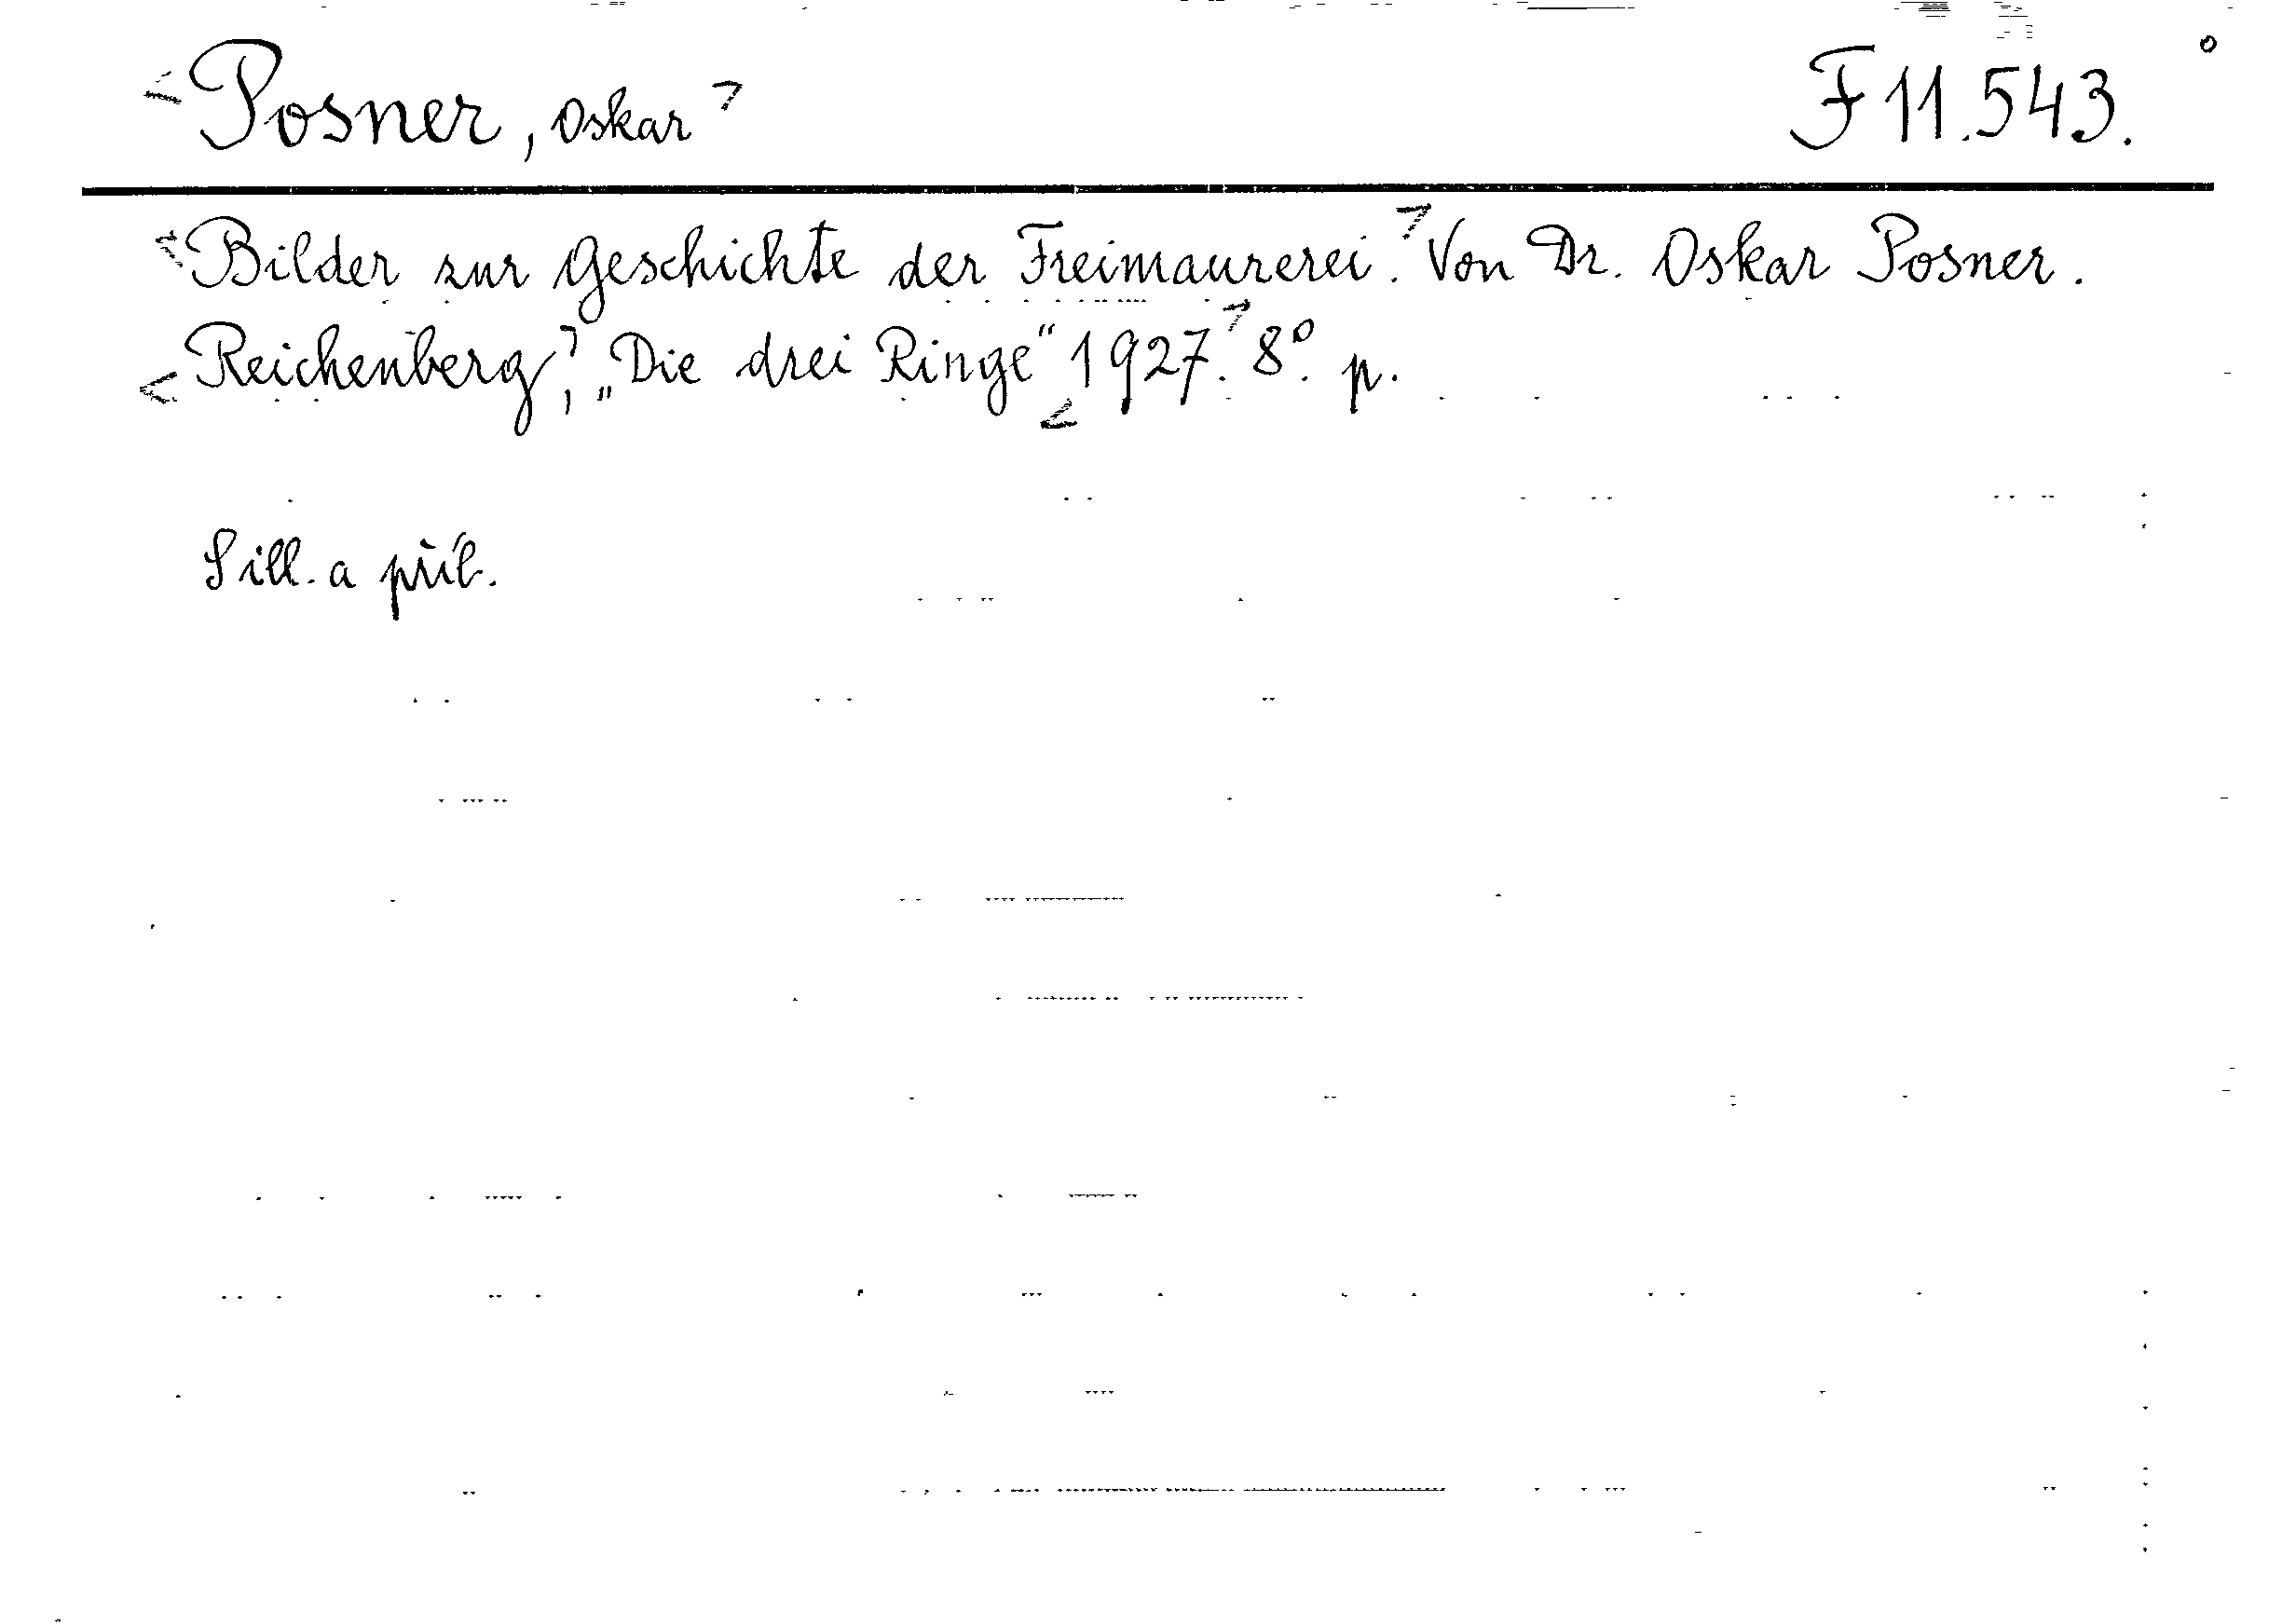 <Posner, Oskar> F 11.543.
<Bilder zur Geschichte der Freimaurerei.> Von Dr. Oskar Posner.
<Reichenberg,> „Die drei Ringe“ <1927.> 8°. p.
Sill. a přib.